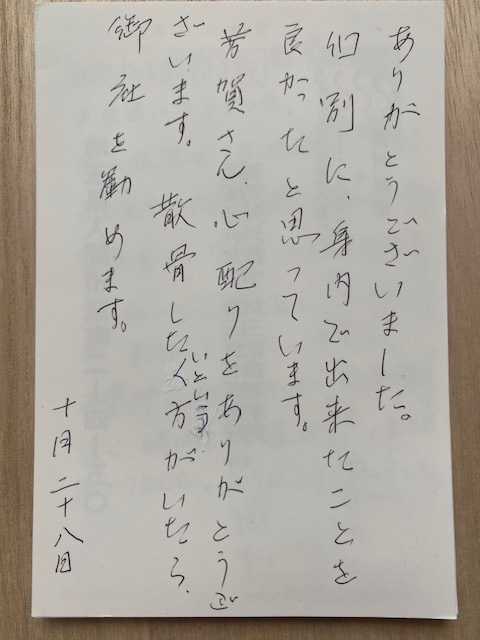 ありがとうございました。
個別に、身内で出来たことを
良かったと思っています。
芳賀さん、心配りをありがとうご
ざいます。散骨したいという方がいたら、
御社を勧めます。
十月二十八日